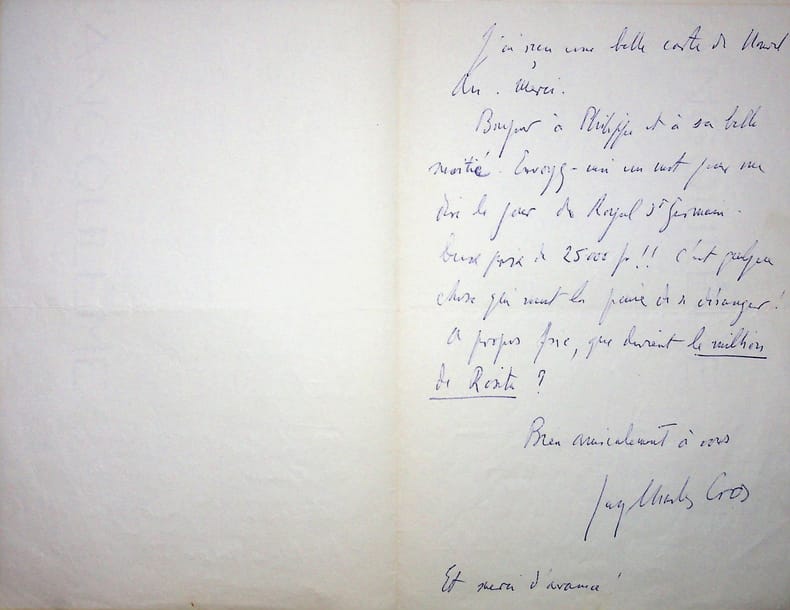 J'ai reçu une belle carte de
du. Merci.
Bonjour à Philippe et à sa belle
moitié. Envoyez-moi un mot pour me
dire le jour du Royal St Germain.
Une prix de 25000 fr!! C'est quelque
chose qui vaut la peine de se déranger!
A propos fric, que devient le million
de Rosita ?
Bien amicalement à vous
Guy Charles Cros
Et merci d'avance!